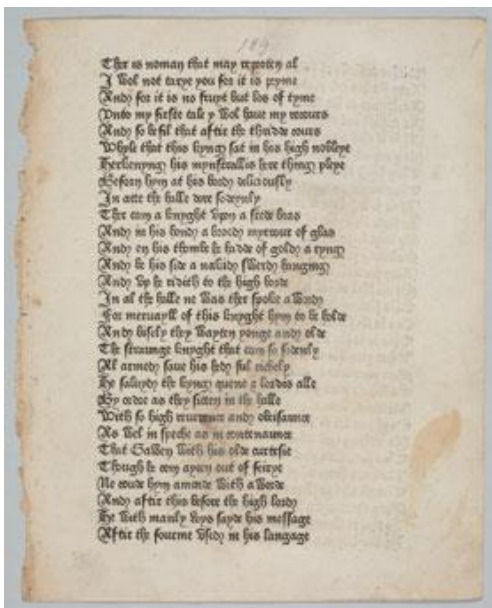 189
Ther is noman that may reporten al
I wol not tarye you for it is pryme
And for it is no fruyt but los of tyme
Vnto my firste tale y wol haue my recours
And so befil that aftir the thridde cours
Whyle that this kyng sat in his high nobleye
Herkenyng his mynstrallis here thing pleye
Beforn hym at his bord deliciously
In atte the halle dore sodeynly
Ther cam a knyght vpon a stede bras
And in his hond a brood myrrour of glas
And on his thombe he hadde of gold a ryng
And be his side a nakid swerd hanging
And vp he rideth to the high borde
In al the halle ne was ther spoke a word
For meruayll of this knyght hym to be holde
And bisely they wayten yonge and olde
The straunge knyght that cam so sodenly
Al armed saue his hed ful richely
He saluyd the kyng quene & lordis alle
By ordre as they sitten in the halle
With so high reuerence and obeisaunce
As wel in speche as in contenaunce
That Gawen with his olde curtesie
Though he com ayen out of feirye
Ne coude hym amende with a worde
And aftir this before the high bord
He with manly voys sayde his message
Aftir the fourme vsed in his langage